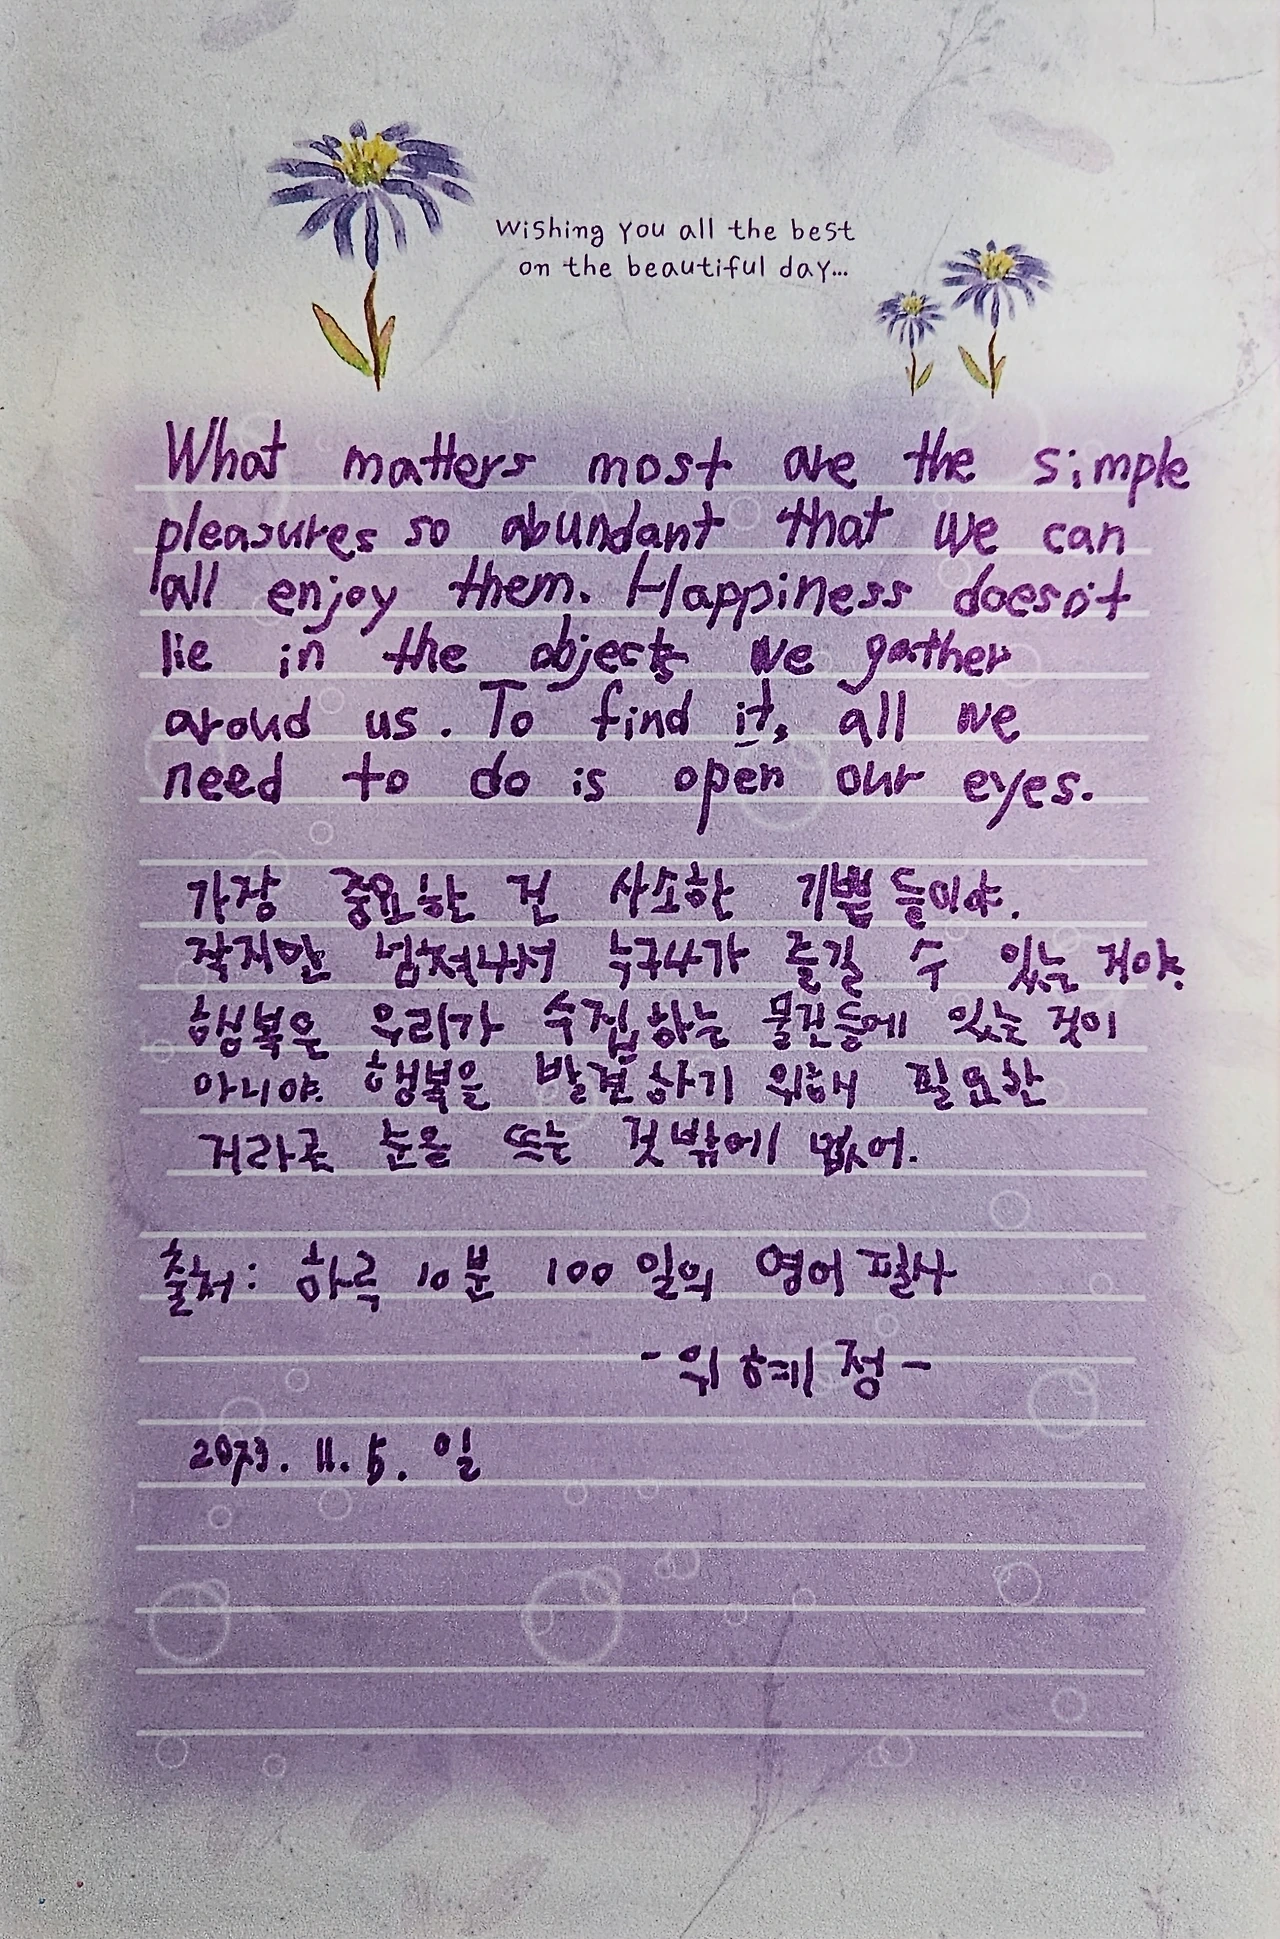 Wishing you all the best
on the beautiful day...
What matters most are the simple
pleasures so abundant that we can
all enjoy them. Happiness doesn't
lie in the objects we gather
aroud us. To find it, all we
need to do is open our eyes.
가장 중요한 건 사소한 기쁨들이야.
작지만 넘쳐나서 누구나가 즐길 수 있는 거야.
행복은 우리가 수집하는 물건들에 있는 것이
아니야. 행복을 발견하기 위해 필요한
거라곤 눈을 뜨는 것밖에 없어.
출처: 하루 10분 100일의 영어필사
- 위혜정 -
2023. 11. 5. 일